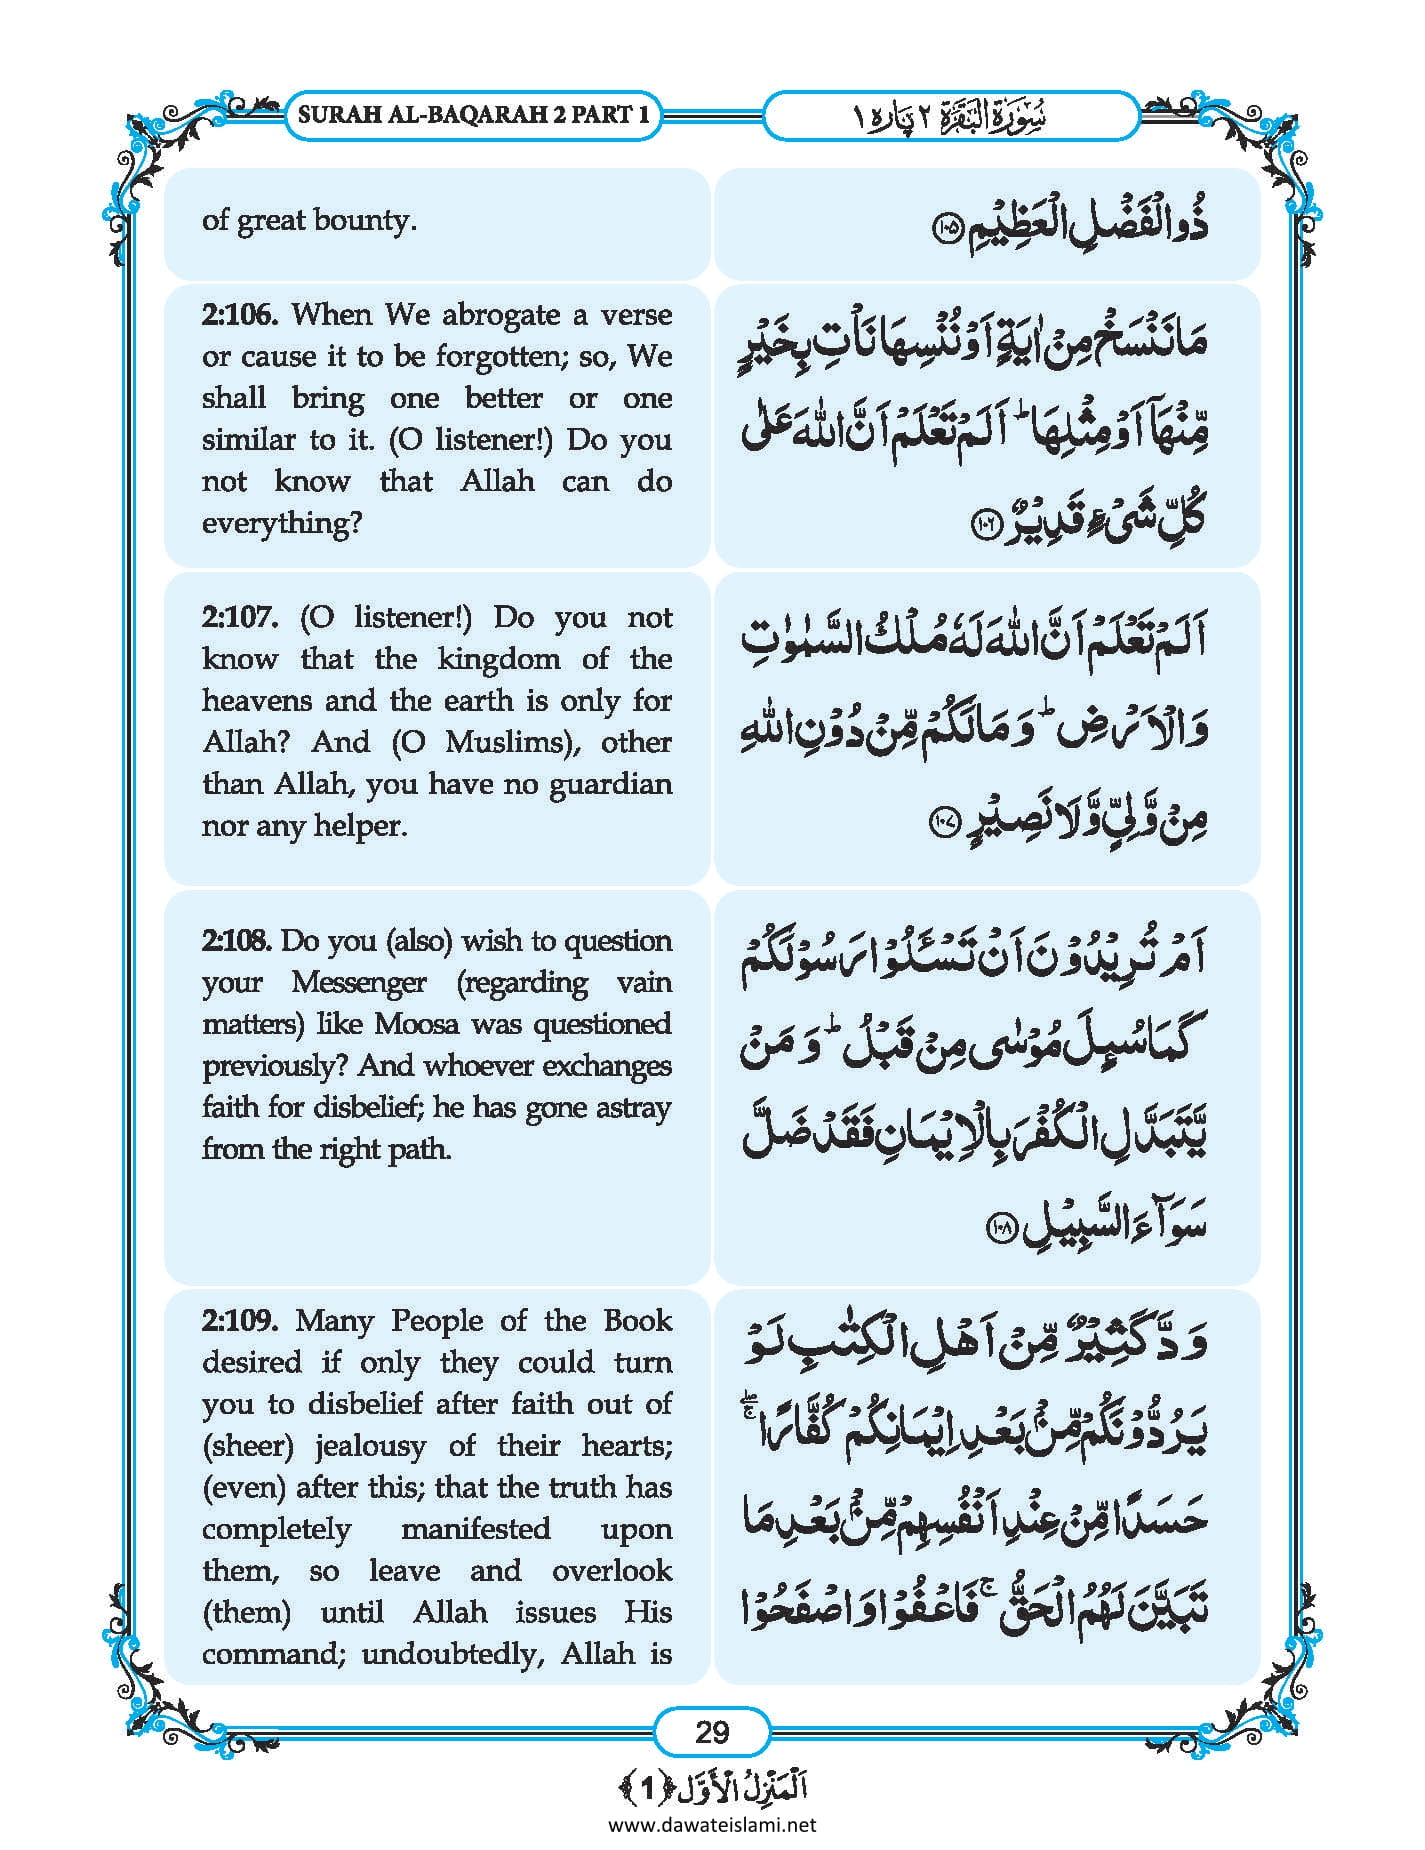 SURAH AL-BAQARAH 2 PART 1
سُوْرَةُ الْبَقَرَة ٢ پَارہ ١
of great bounty.
ذُو الْفَضْلِ الْعَظِیْمِ ۝۱۰۵
2:106. When We abrogate a verse
or cause it to be forgotten; so, We
shall bring one better or one
similar to it. (O listener!) Do you
not know that Allah can do
everything?
مَا نَنْسَخْ مِنْ اٰیَةٍ اَوْ نُنْسِهَا نَاْتِ بِخَیْرٍ
مِّنْهَاۤ اَوْ مِثْلِهَاؕ اَلَمْ تَعْلَمْ اَنَّ اللّٰهَ عَلٰى
كُلِّ شَیْءٍ قَدِیْرٌ ۝۱۰۶
2:107. (O listener!) Do you not
know that the kingdom of the
heavens and the earth is only for
Allah? And (O Muslims), other
than Allah, you have no guardian
nor any helper.
اَلَمْ تَعْلَمْ اَنَّ اللّٰهَ لَهٗ مُلْكُ السَّمٰوٰتِ
وَ الْاَرْضِؕ وَ مَا لَكُمْ مِّنْ دُوْنِ اللّٰهِ
مِنْ وَّلِیٍّ وَّ لَا نَصِیْرٍ ۝۱۰۷
2:108. Do you (also) wish to question
your Messenger (regarding vain
matters) like Moosa was questioned
previously? And whoever exchanges
faith for disbelief; he has gone astray
from the right path.
اَمْ تُرِیْدُوْنَ اَنْ تَسْـَٔلُوْا رَسُوْلَكُمْ
كَمَا سُىِٕلَ مُوْسٰى مِنْ قَبْلُؕ وَ مَنْ
یَّتَبَدَّلِ الْكُفْرَ بِالْاِیْمَانِ فَقَدْ ضَلَّ
سَوَآءَ السَّبِیْلِ ۝۱۰۸
2:109. Many People of the Book
desired if only they could turn
you to disbelief after faith out of
(sheer) jealousy of their hearts;
(even) after this; that the truth has
completely manifested upon
them, so leave and overlook
(them) until Allah issues His
command; undoubtedly, Allah is
وَدَّ كَثِیْرٌ مِّنْ اَهْلِ الْكِتٰبِ لَوْ
یَرُدُّوْنَكُمْ مِّنْۢ بَعْدِ اِیْمَانِكُمْ كُفَّارًا ۚۖ
حَسَدًا مِّنْ عِنْدِ اَنْفُسِهِمْ مِّنْۢ بَعْدِ مَا
تَبَیَّنَ لَهُمُ الْحَقُّۚ فَاعْفُوْا وَ اصْفَحُوْا
29
اَلْمَنْزِلُ الْأَوَّل ﴿1﴾
www.dawateislami.net